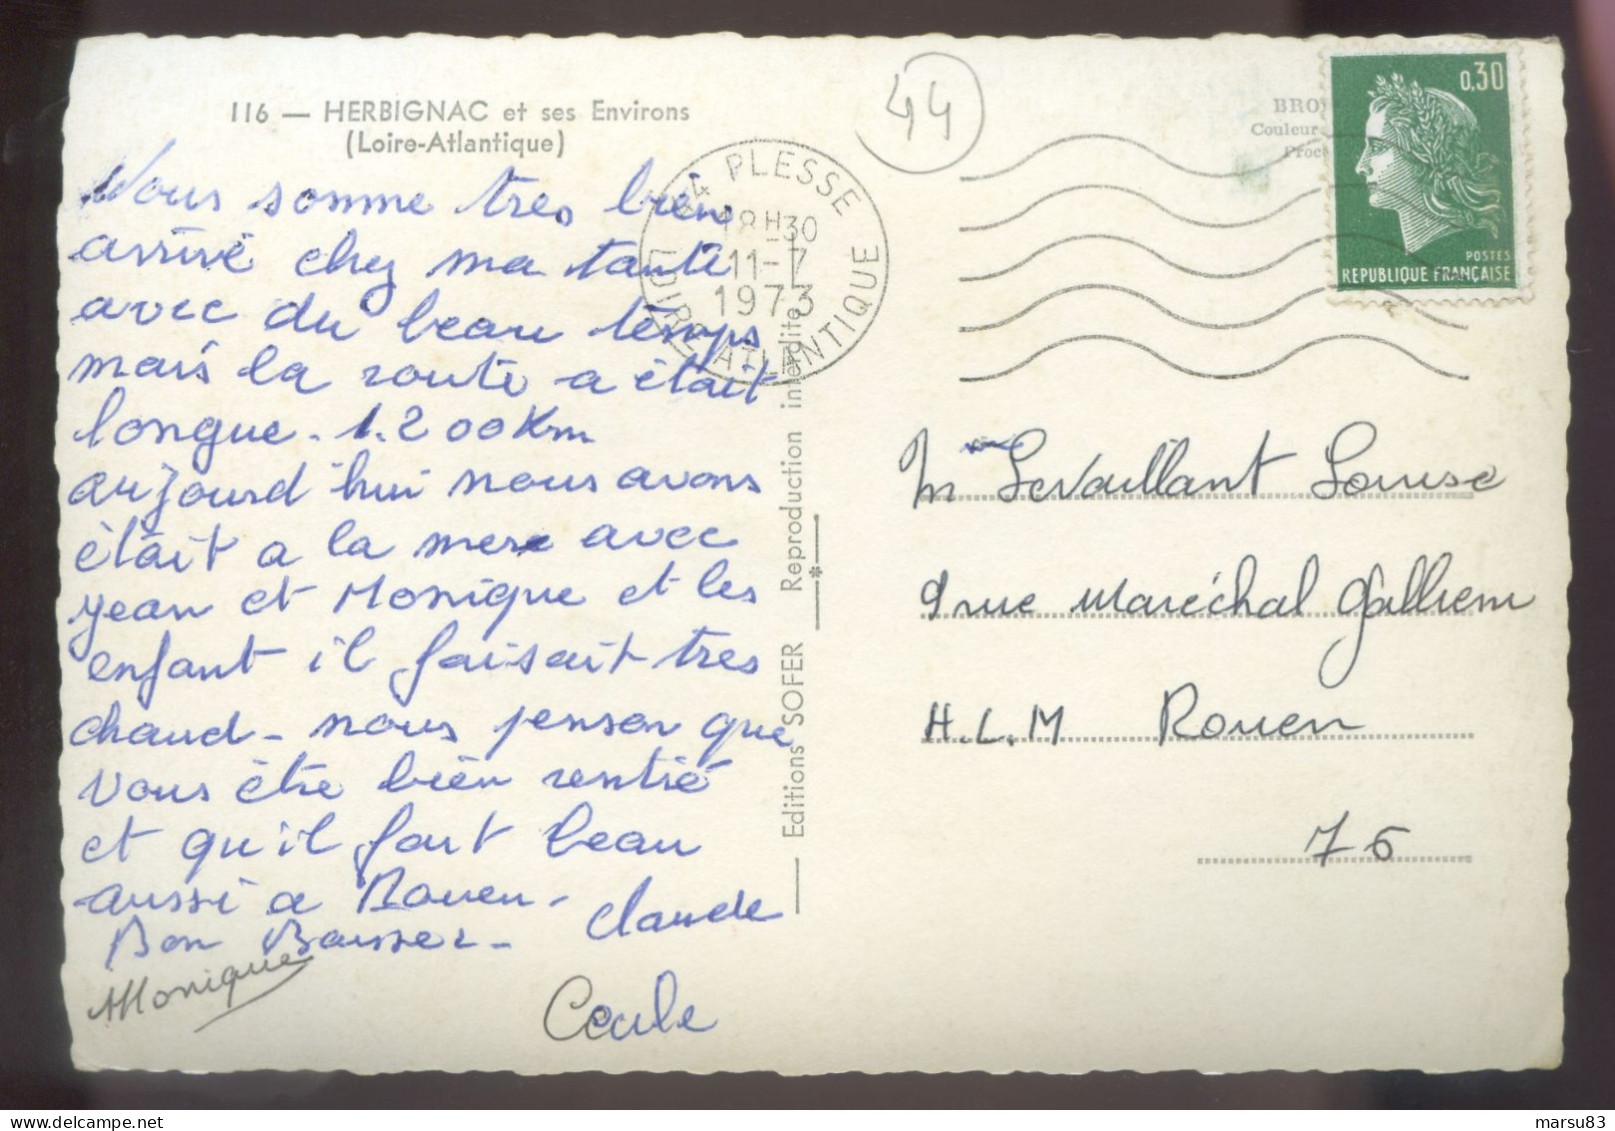 116 — HERBIGNAC et ses Environs
(Loire-Atlantique)
Nous somme tres bien
arrivé chez ma tante
avec du beau temps
mais la route a était
longue - 1.200 Km
aujourd'hui nous avons
était a la mere avec
jean et Monique et les
enfant il faisait tres
chaud - nous penson que
vous être bien rentré
et qu'il fait beau
aussi a Rouen -
Bon Baiser - Claude
Monique
Cecile
44
44 PLESSE
18H30
11-7
1973
LOIRE ATLANTIQUE
Editions SOFER
Reproduction interdite
BRO
Couleur
Proc
0,30
POSTES
REPUBLIQUE FRANÇAISE
M Levaillant Louise
9 rue Maréchal Gallieni
H.L.M Rouen
76
marsu83